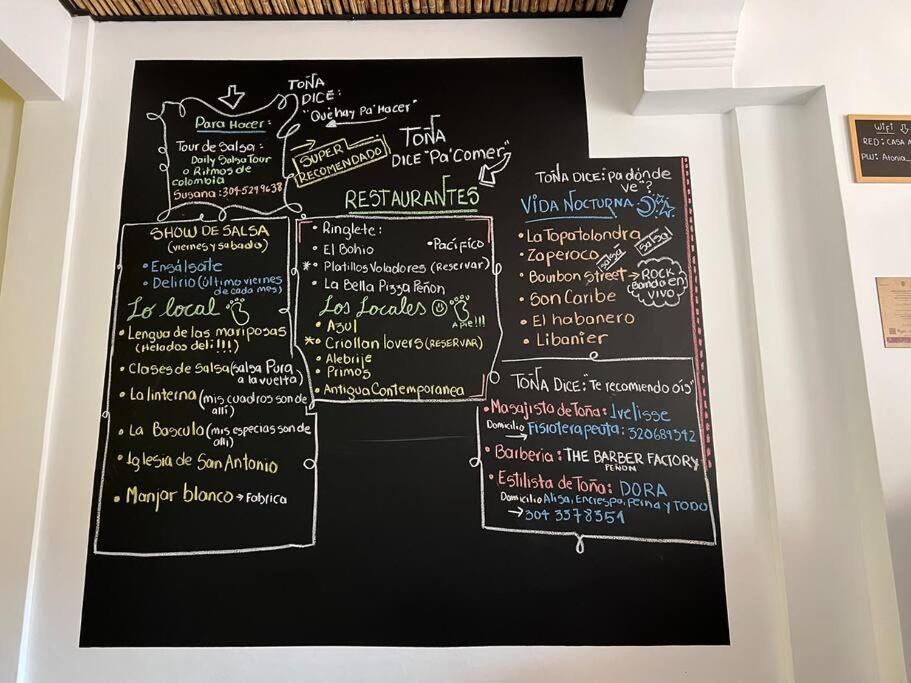 TOÑA
DICE:
"Qué hay Pa' Hacer"
Para Hacer:
Tour de Salsa:
Daily Salsa Tour
o Ritmos de
colombia
Susana: 3045299638
SUPER
RECOMENDADO
SHOW DE SALSA
(viernes y sabado)
• Ensálsate
• Delirio (último viernes
de cada mes)
Lo local
• Lengua de las mariposas
(Helados deli!!!)
• Clases de Salsa (salsa Pura
a la vuelta)
• La linterna (mis cuadros son de
allí)
• La Bascula (mis especias son de
allí)
• Iglesia de San Antonio
• Manjar blanco → Fabrica
TOÑA
DICE "Pa' Comer"
RESTAURANTES
• Ringlete:
• El Bohio
• Pacífico
* • Platillos Voladores (RESERVAR)
• La Bella Pizza Peñon
Los Locales
A pie!!!
• Azul
* • Criollan lovers (RESERVAR)
• Alebrije
• Primos
• Antigua Contemporanea
TOÑA DICE: pa dónde
ve"?
VIDA NOCTURNA
• La Topa tolondra
• Zaperoco
Salsa
Salsa!
• Bourbon Street → ROCK
Banda en
VIVO
• Son Caribe
• El habanero
• Libanier
TOÑA DICE: "Te recomiendo oís"
• Masajista de Toña: Ivelisse
Domicilio → Fisioterapeuta: 320689342
• Barberia: THE BARBER FACTORY
PEÑON
• Estilista de Toña: DORA
Domicilio Alisa, Encrespa, peina y TODO
→ 304 3378351
WiFi
RED: CASA A
PW: Atonia_